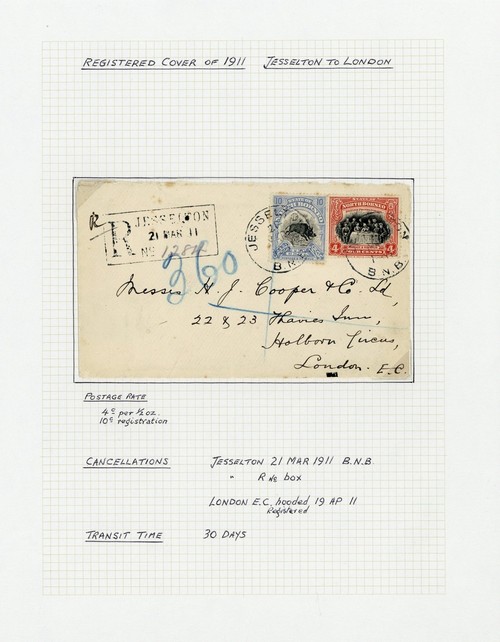 REGISTERED COVER OF 1911 JESSELTON TO LONDON
R
JESSELTON
21 MAR 11
R No
360
STATE OF
NORTH BORNEO
JESSELTON
B.N.B.
STATE OF
NORTH BORNEO
4 4
CENTS
B.N.B.
Messrs H. J. Cooper & Co. Ld,
22 & 23 Thavies Inn,
Holborn Circus,
London. E.C.
POSTAGE RATE
4c per ½ oz.
10c registration
CANCELLATIONS JESSELTON 21 MAR 1911 B.N.B.
" R No box
LONDON E.C. hooded 19 AP 11
Registered
TRANSIT TIME 30 DAYS